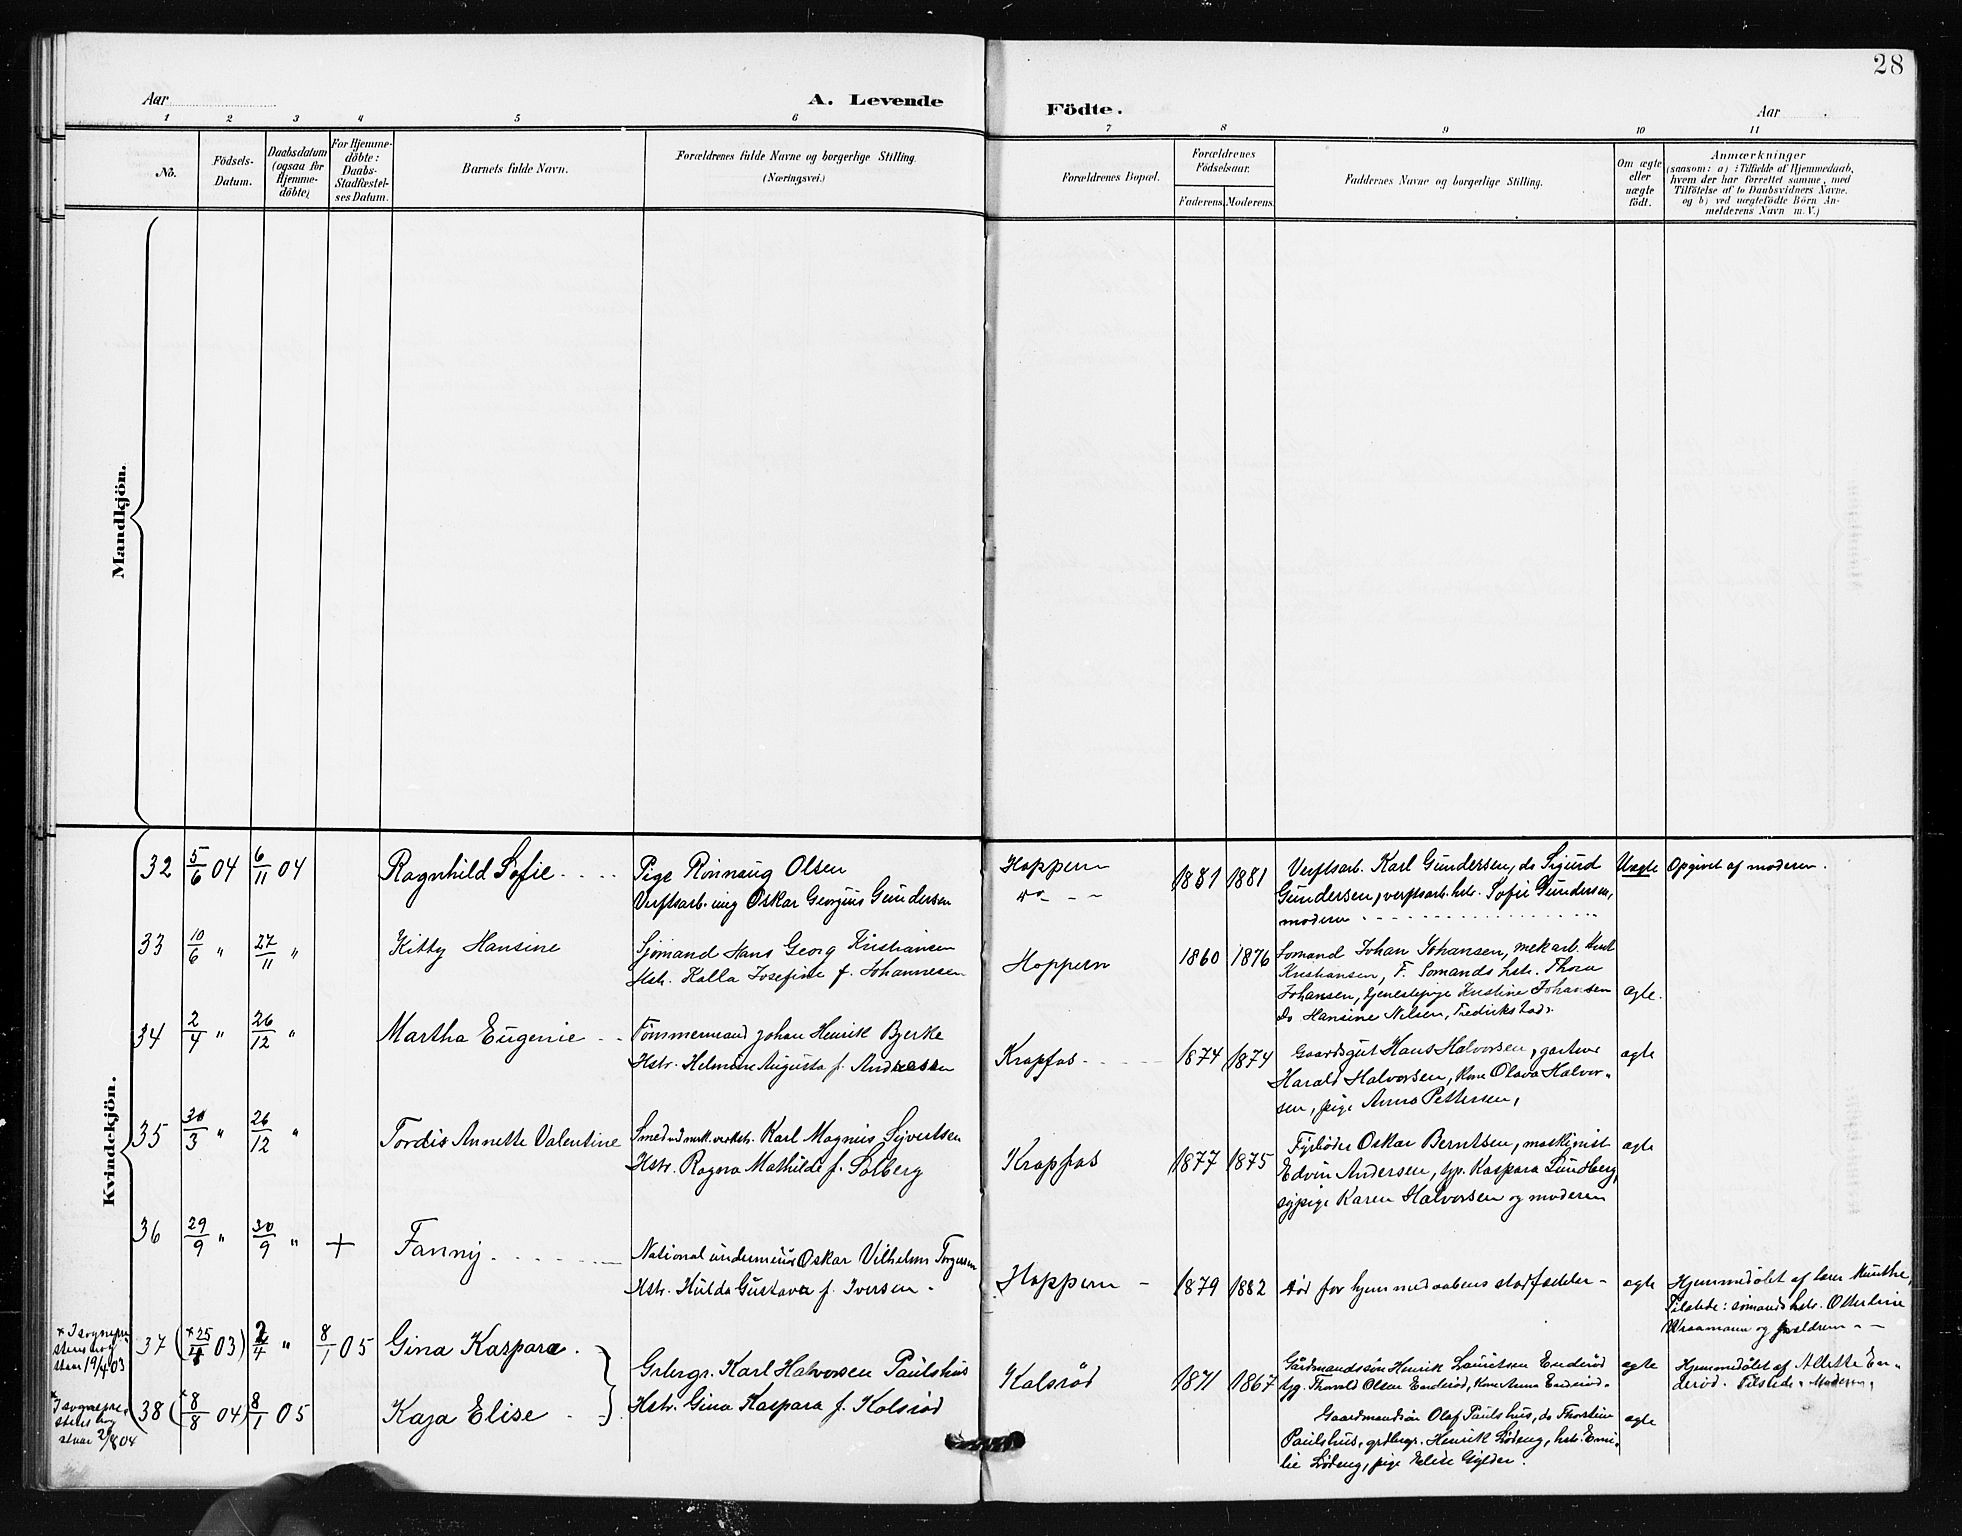 28
Aar A. Levende Födte. Aar
1 2 3 4 5 6 7 8 9 10 11
No.
Födsels-Datum.
Daabsdatum (ogsaa for Hjemme-döbte).
For Hjemme-döbte: Daabs-Stadfæstel-ses Datum.
Barnets fulde Navn.
Forældrenes fulde Navne og borgerlige Stilling.
(Næringsvei.)
Forældrenes Bopæl.
Forældrenes Födselsaar.
Faderens. Moderens.
Faddernes Navne og borgerlige Stilling.
Om ægte eller uægte födt.
Anmærkninger
(saasom: a) i Tilfælde af Hjemmedaab,
hvem der har forrettet samme, med
Tilföielse af to Daabsvidners Navne.
og b) ved uægtefödte Börn An-
melderens Navn m. V.)
Mandkjön.
Kvindekjön.
32 5/6 04 6/11 04 Ragnhild Sofie Pige Rönnaug Olsen Hoppern 1881 1881 Verftsarb. Karl Gundersen, do Sigurd Uægte Opgivet af moderen.
Verftsarb. ung Oskar Georgius Gundersen do Gundersen, verftsarb. hstr. Sofie Gundersen,
moderen
33 10/6 " 27/11 " Kitty Hansine Sjömand Hans Georg Kristiansen Hoppern 1860 1876 Sömand Johan Johansen, mek arb.
Hstr. Kalla Josefine f. Johannesen Kristiansen, F. Sömands hstr. Thora
Johansen, tjenestepige Kristine Johansen ægte.
do Hansine Nilsen, Fredrikstad.
34 2/4 " 26/12 " Martha Eugenie Tömmermand Johan Henrik Bjerke Krapfos 1874 1874 Gaardsgut Hans Halvorsen, gartner ægte
Hstr. Helmine Augusta f. Andresen Harald Halvorsen, Kone Olava Halvor-
sen, pige Anna Pettersen,
35 30/3 " 26/12 " Tordis Annette Valentine Smed ved mek. verkst. Karl Magnus Syvertsen Krapfos 1877 1875 Fyrböder Oskar Berntsen, maskinist ægte
Hstr. Ragna Mathilde f. Solberg Edvin Andersen, syp. Kaspara Lundberg,
sypige Karen Halvorsen og moderen
36 29/9 " 30/9 " + Fanny National underm. Oskar Vilhelm Torgersen Hoppern 1879 1882 död för hjemmedaabens stadfæstelse ægte Hjemmedöbt af lærer Munthe,
Hstr. Hulda Gustava f. Iversen Tilstede: sömands hstr. Otterline
Wraamann og forældrene
x I sognepre-
stens bog
staar 19/4 03
37 (x 25/4 03) 2/4 " 8/1 05 Gina Kaspara Grbrgr. Karl Halvorsen Paulshus Kalsröd 1871 1867 Gårdmandssön Henrik Lauritsen Enderöd ægte Hjemmedöbt af Allette En-
Hstr. Gina Kaspara f. Kolsröd syp. Thorvald Olsen Enderöd, Kone Anna Enderöd. deröd. Tilstede: Moderen,
x I sognepre-
stens bog
staar 2/8 04
38 (x 8/8 04) 8/1 05 Kaja Elise Gaardmandssön Olaf Paulshus, do Thorstein ægte
Paulshus, grdbrgr. Henrik Lödeng, hstr. Emi-
lie Lödeng, pige Elise Gylder.